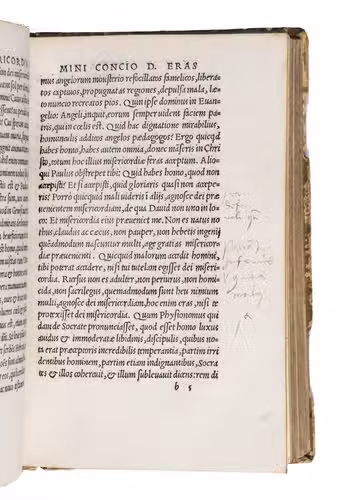 MINI CONCIO D. ERAS
mus angelorum ministerio refocillatos famelicos, libera
tos captiuos, propugnatas regiones, depulsa mala, læ
to nuncio recreatos pios. Quin ipse dominus in Euan
gelio: Angeli, inquit, eorum semper uident faciem pa
tris, qui in cœlis est. Quid hac dignatione mirabilius,
hominulis additos angelos pædagogos? Ergo quicqd
habes homo, habes autem omnia, donec māseris in Chri
sto, totum hoc illius misericordiæ feras acceptum. Alio
qui Paulus obstrepet tibi: Quid habes homo, quod non
accepisti? Et si accepisti, quid gloriaris quasi non accepe
ris? Porrò quicquid mali uideris ī alijs, agnosce dei præ
uenientem misericordiam, de qua Dauid non uno in lo
co: Et misericordia eius præueniet me. Non es natus no
thus, claudus aut cæcus, non pauper, non hebetis ingenij
quēadmodum nascuntur multi, age gratias misericor
diæ præuenienti. Quicquid malorum accidit homini,
tibi poterat accidere, nisi te tutelam egisset dei misericor
dia. Rursus non es adulter, non periurus, non homici
da, non sacrilegus, quemadmodum sunt heu nimium
multi, agnosce dei misericordiam, hoc enim eras, nisi te
protexisset dei misericordia. Quum Physionomus qui
dam de Socrate pronunciasset, quod esset homo luxus
auidus & immoderatæ libidinis, discipulis, quibus no
ta erat præceptoris incredibilis temperantia, partim irri
dentibus hominem, partim etiam indignantibus, Socra
tes & illos cohercuit, & illum subleuauit dicens: rem di
b 5